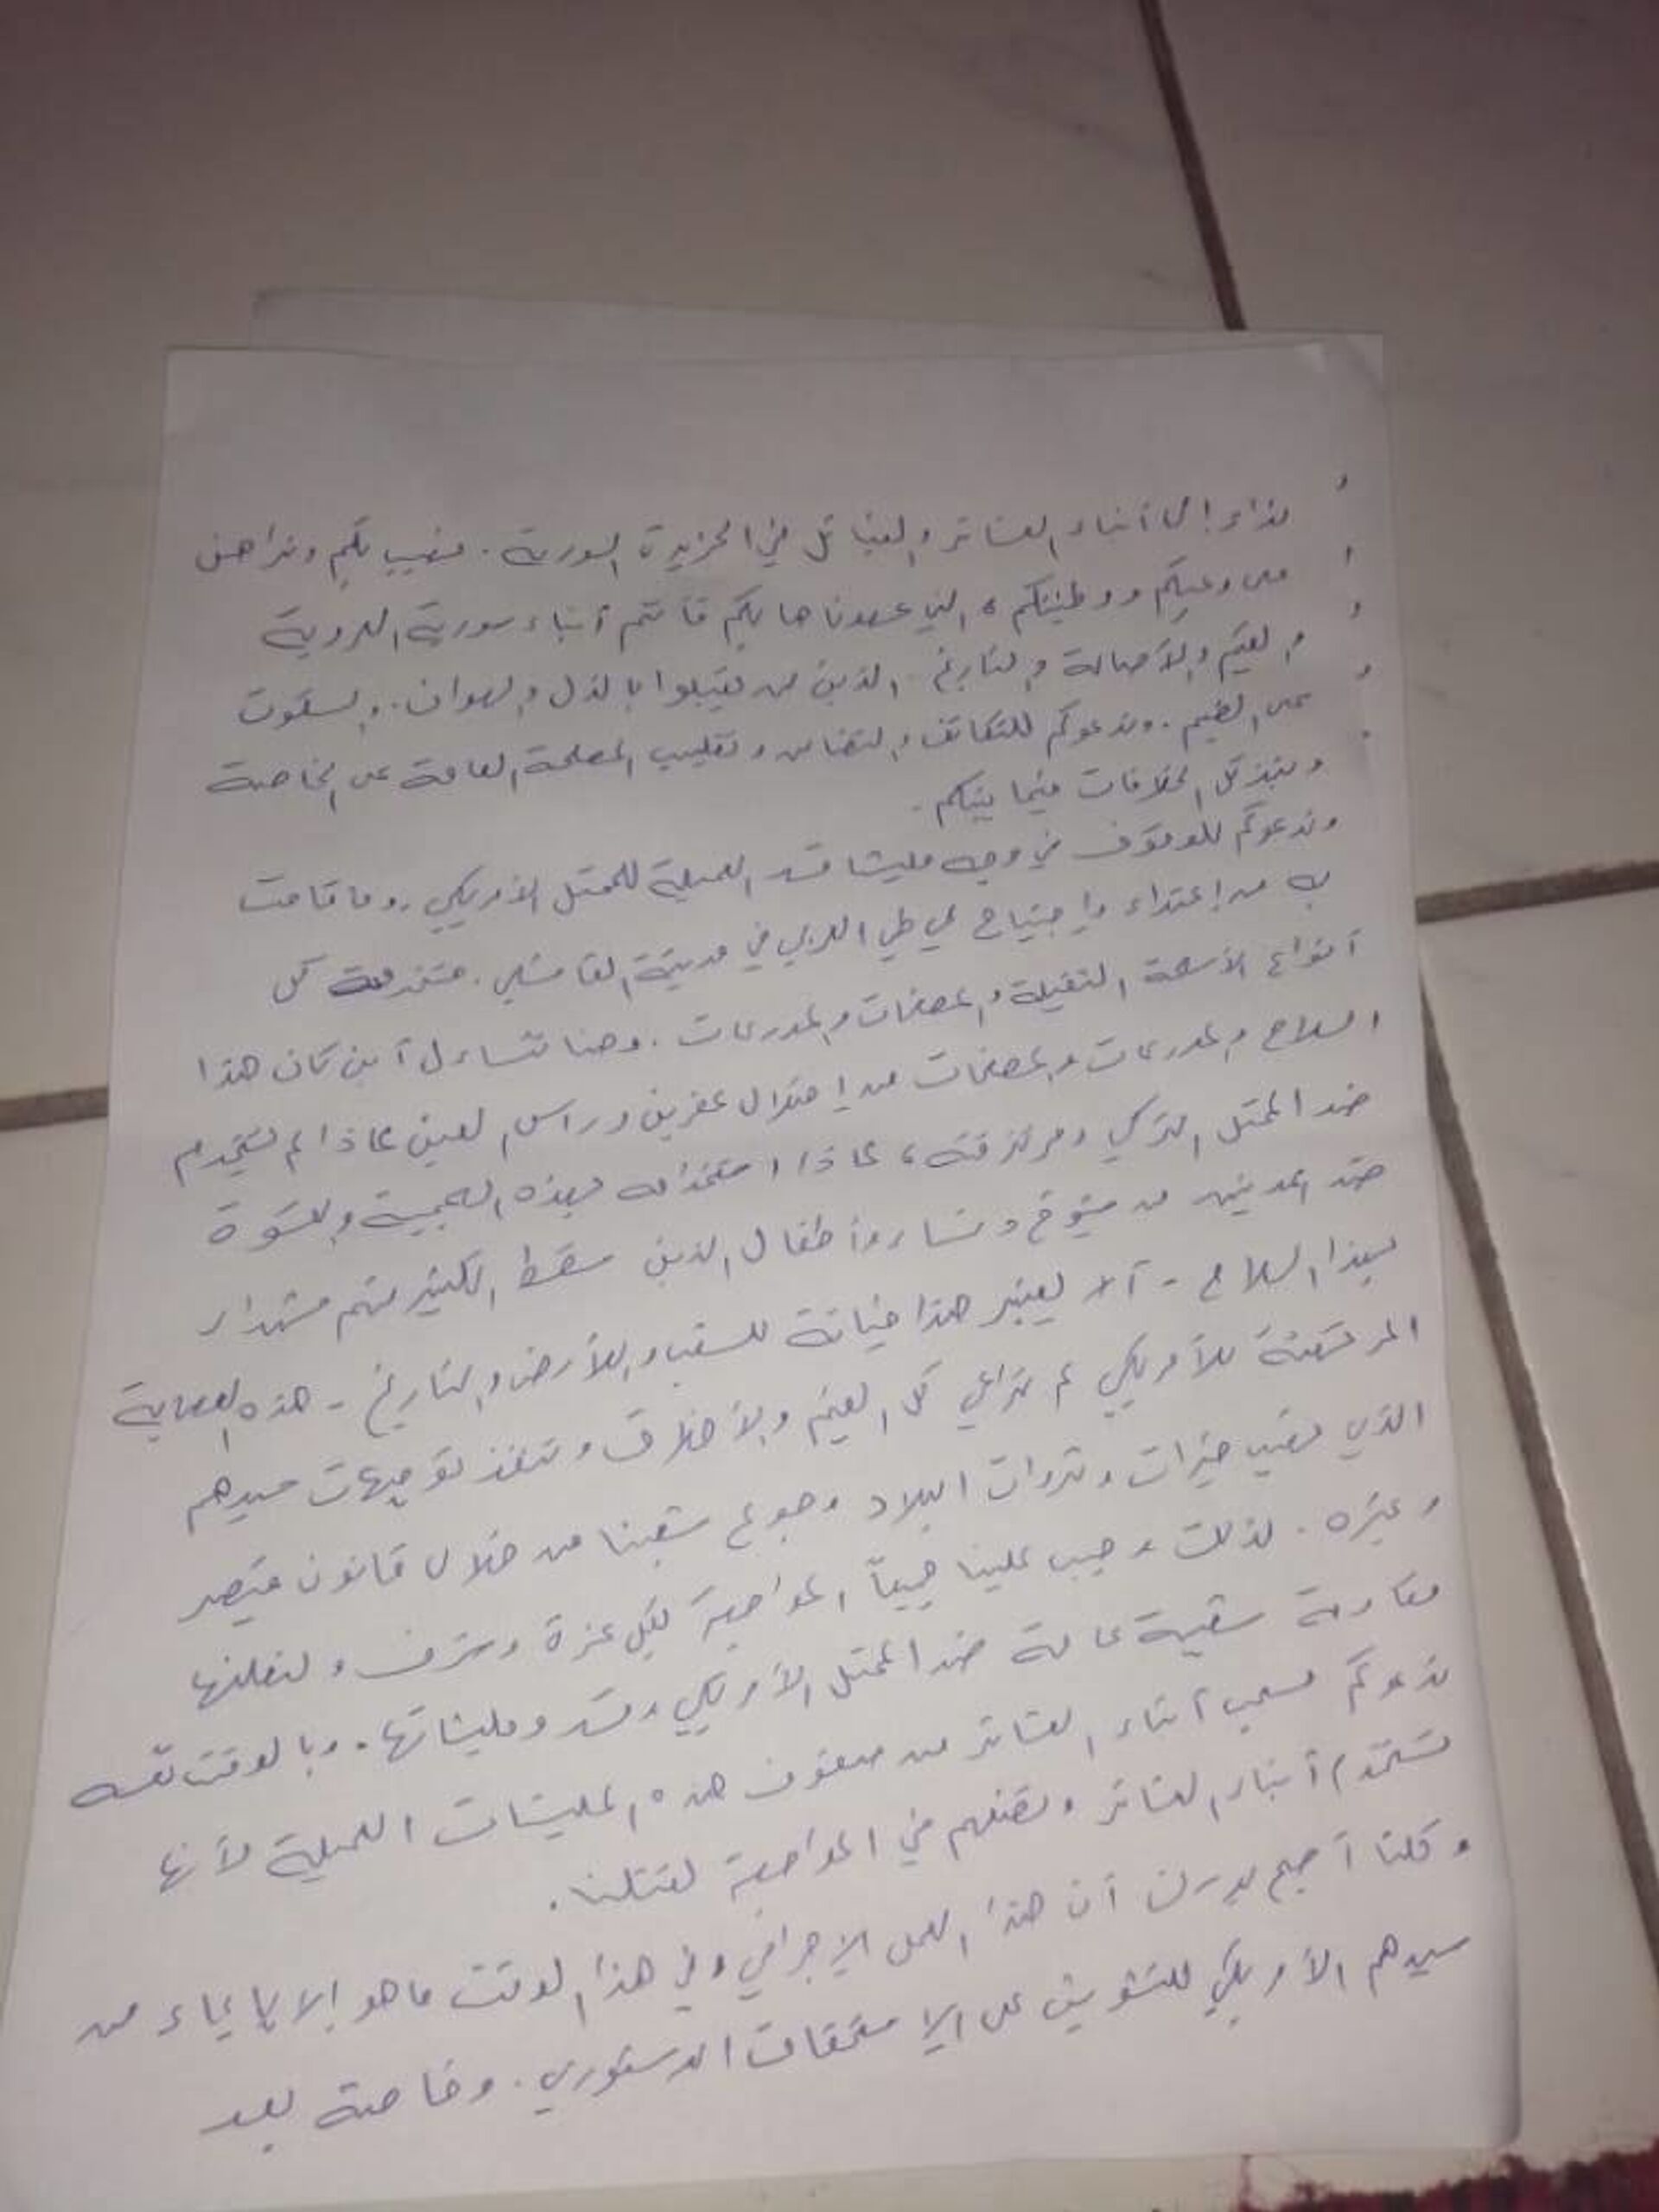 نداء إلى أبناء العشائر والقبائل في الجزيرة السورية. نهيب بكم ونراهن
على وعيكم ووطنيتكم، التي عهدناها بكم فأنتم أبناء سورية العروبة
والقيم والأصالة والتاريخ. الذين لن يقبلوا بالذل والهوان. والسكوت
على الضيم. وندعوكم للتكاتف والتضامن وتغليب المصلحة العامة على الخاصة
ونبذ كل الخلافات فيما بينكم.
وندعوكم للوقوف في وجه مليشا قسد العميلة للمحتل الأمريكي. وما قامت
به من إعتداء وإجتياح لحي طي العربي في مدينة القامشلي. مستخدمة كل
أنواع الأسلحة الثقيلة والمصفحات والمدرعات. وهنا نتساءل أين كان هذا
السلاح والمدرعات والمصفحات من إحتلال عفرين وراس العين لماذا لم تستخدم
ضد المحتل التركي ومرتزقته، لماذا استخدامه بهذه الهمجية والقسوة
ضد المدنيين من شيوخ ونساء وأطفال الذين سقط الكثير منهم شهداء
بهذا السلاح - ألا يعتبر هذا خيانة للشعب والأرض والتاريخ - هذه العصابة
المرتهنة للأمريكي لم تراعي كل القيم والأخلاق وتنفذ توجيهات سيدهم
الذي نهب خيرات وثروات البلاد وجوع شعبنا من خلال قانون قيصر
وغيره. لذلك وجب علينا جميعاً المواجهة بكل عزة وشرف ولنعلنها
مقاومة شعبية عامة ضد المحتل الأمريكي وقسد ومليشاتها. وبالوقت نفسه
ندعوكم لسحب أبناء العشائر من صفوف هذه المليشات العميلة لأنها
تستخدم أبناء العشائر وتضعهم في المواجهة لقتلنا.
وكلنا أصبح يدرك أن هذا العمل الإجرامي وفي هذا الوقت ما هو إلا بإيماء من
سيدهم الأمريكي للتشويش على الإستحقاق الدستوري. وخاصة بعد